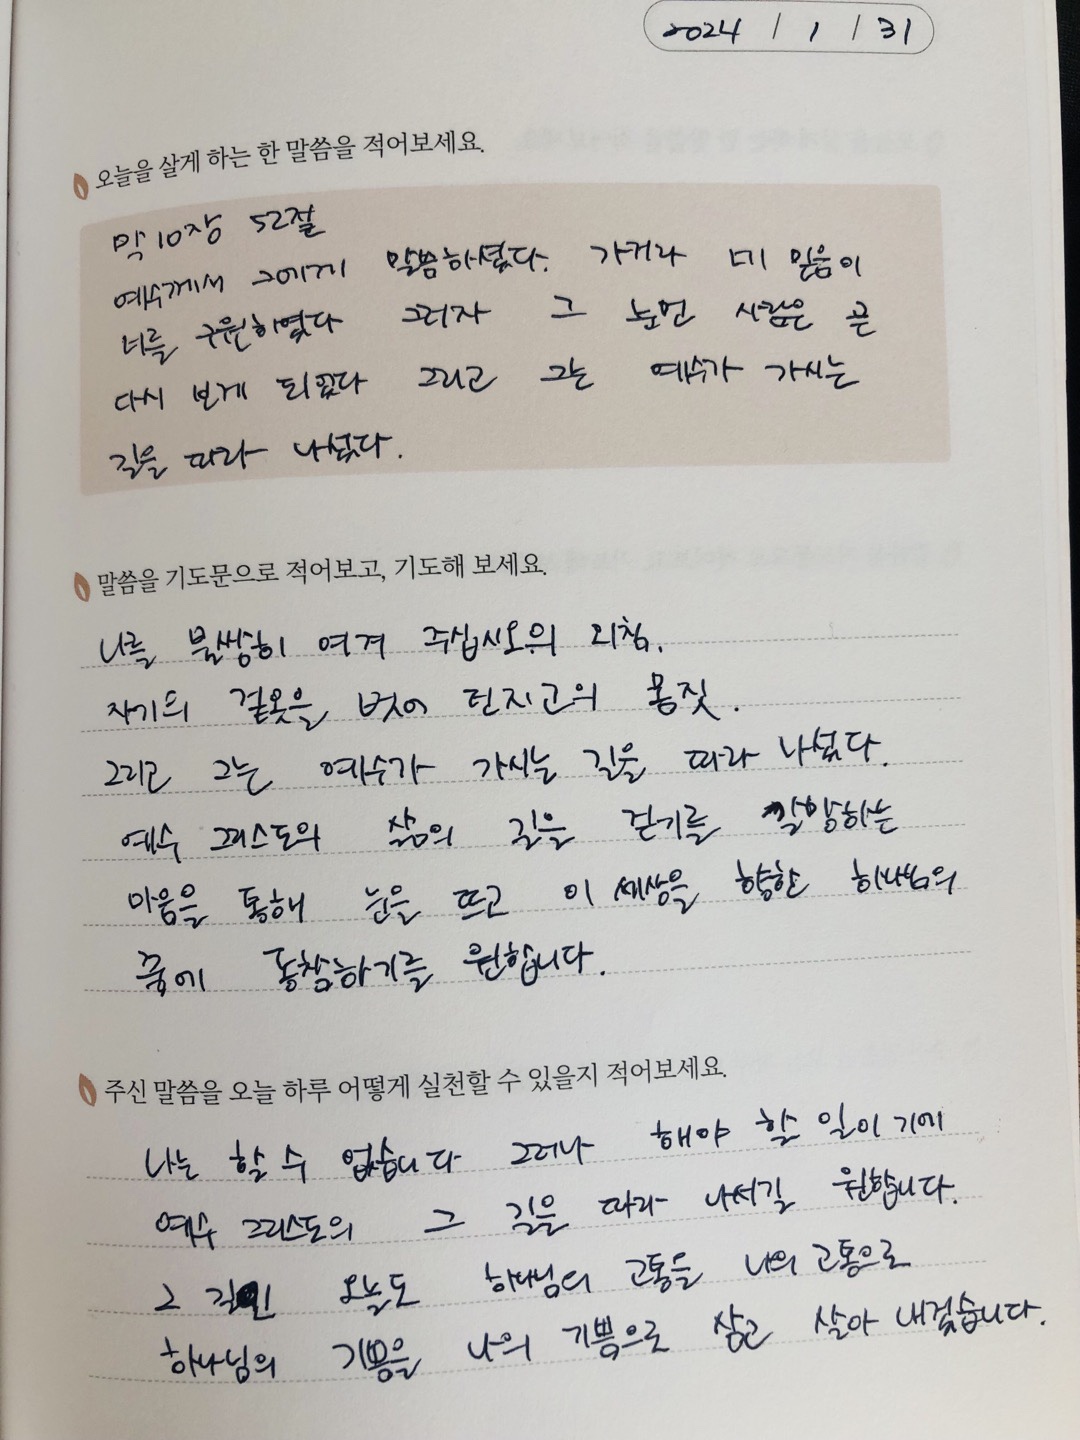 2024 / 1 / 31
오늘을 살게 하는 한 말씀을 적어보세요.
막 10장 52절
예수께서 그에게 말씀하셨다. 가거라 네 믿음이
너를 구원하였다 그러자 그 눈먼 사람은 곧
다시 보게 되었다 그리고 그는 예수가 가시는
길을 따라 나섰다.
말씀을 기도문으로 적어보고, 기도해 보세요.
나를 불쌍히 여겨 주십시오의 외침.
자기의 겉옷을 벗어 던지고의 몸짓.
그리고 그는 예수가 가시는 길을 따라 나섰다.
예수 그리스도의 삶의 길을 걷기를 갈망하는
마음을 통해 눈을 뜨고 이 세상을 향한 하나님의
꿈에 동참하기를 원합니다.
주신 말씀을 오늘 하루 어떻게 실천할 수 있을지 적어보세요.
나는 할 수 없습니다 그러나 해야 할 일이기에
예수 그리스도의 그 길을 따라 나서길 원합니다.
그 오늘도 하나님의 고통을 나의 고통으로
하나님의 기쁨을 나의 기쁨으로 삼고 살아 내겠습니다.